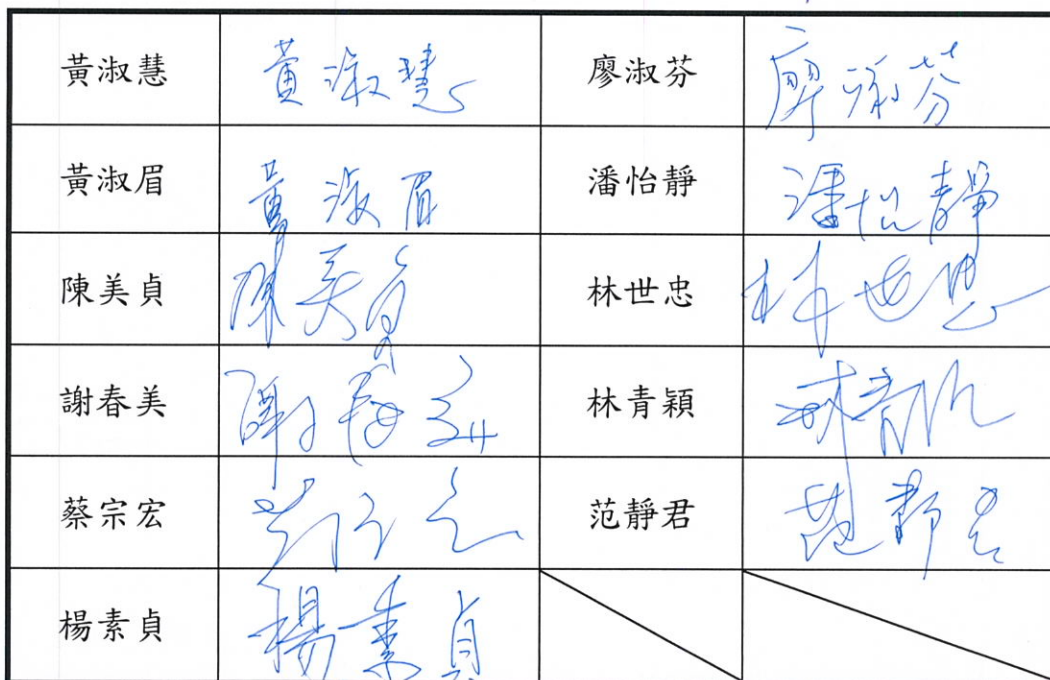 黃淑慧 黃淑慧 廖淑芬 廖淑芬
黃淑眉 黃淑眉 潘怡靜 潘怡靜
陳美貞 陳美貞 林世忠 林世忠
謝春美 謝春美 林青穎 林青穎
蔡宗宏 蔡宗宏 范靜君 范靜君
楊素貞 楊素貞